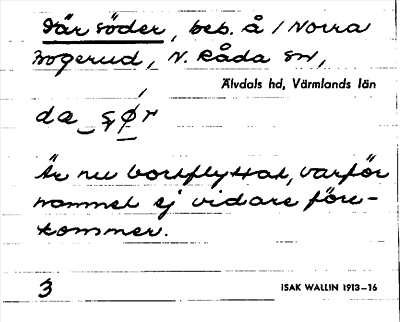 Där söder, beb. å / Norra
Mogerud, N. Råda sn,
Älvdals hd, Värmlands län
dæ sø̱r
Är nu bortflyttat, varför
namnet ej vidare före-
kommer.
3
ISAK WALLIN 1913–16